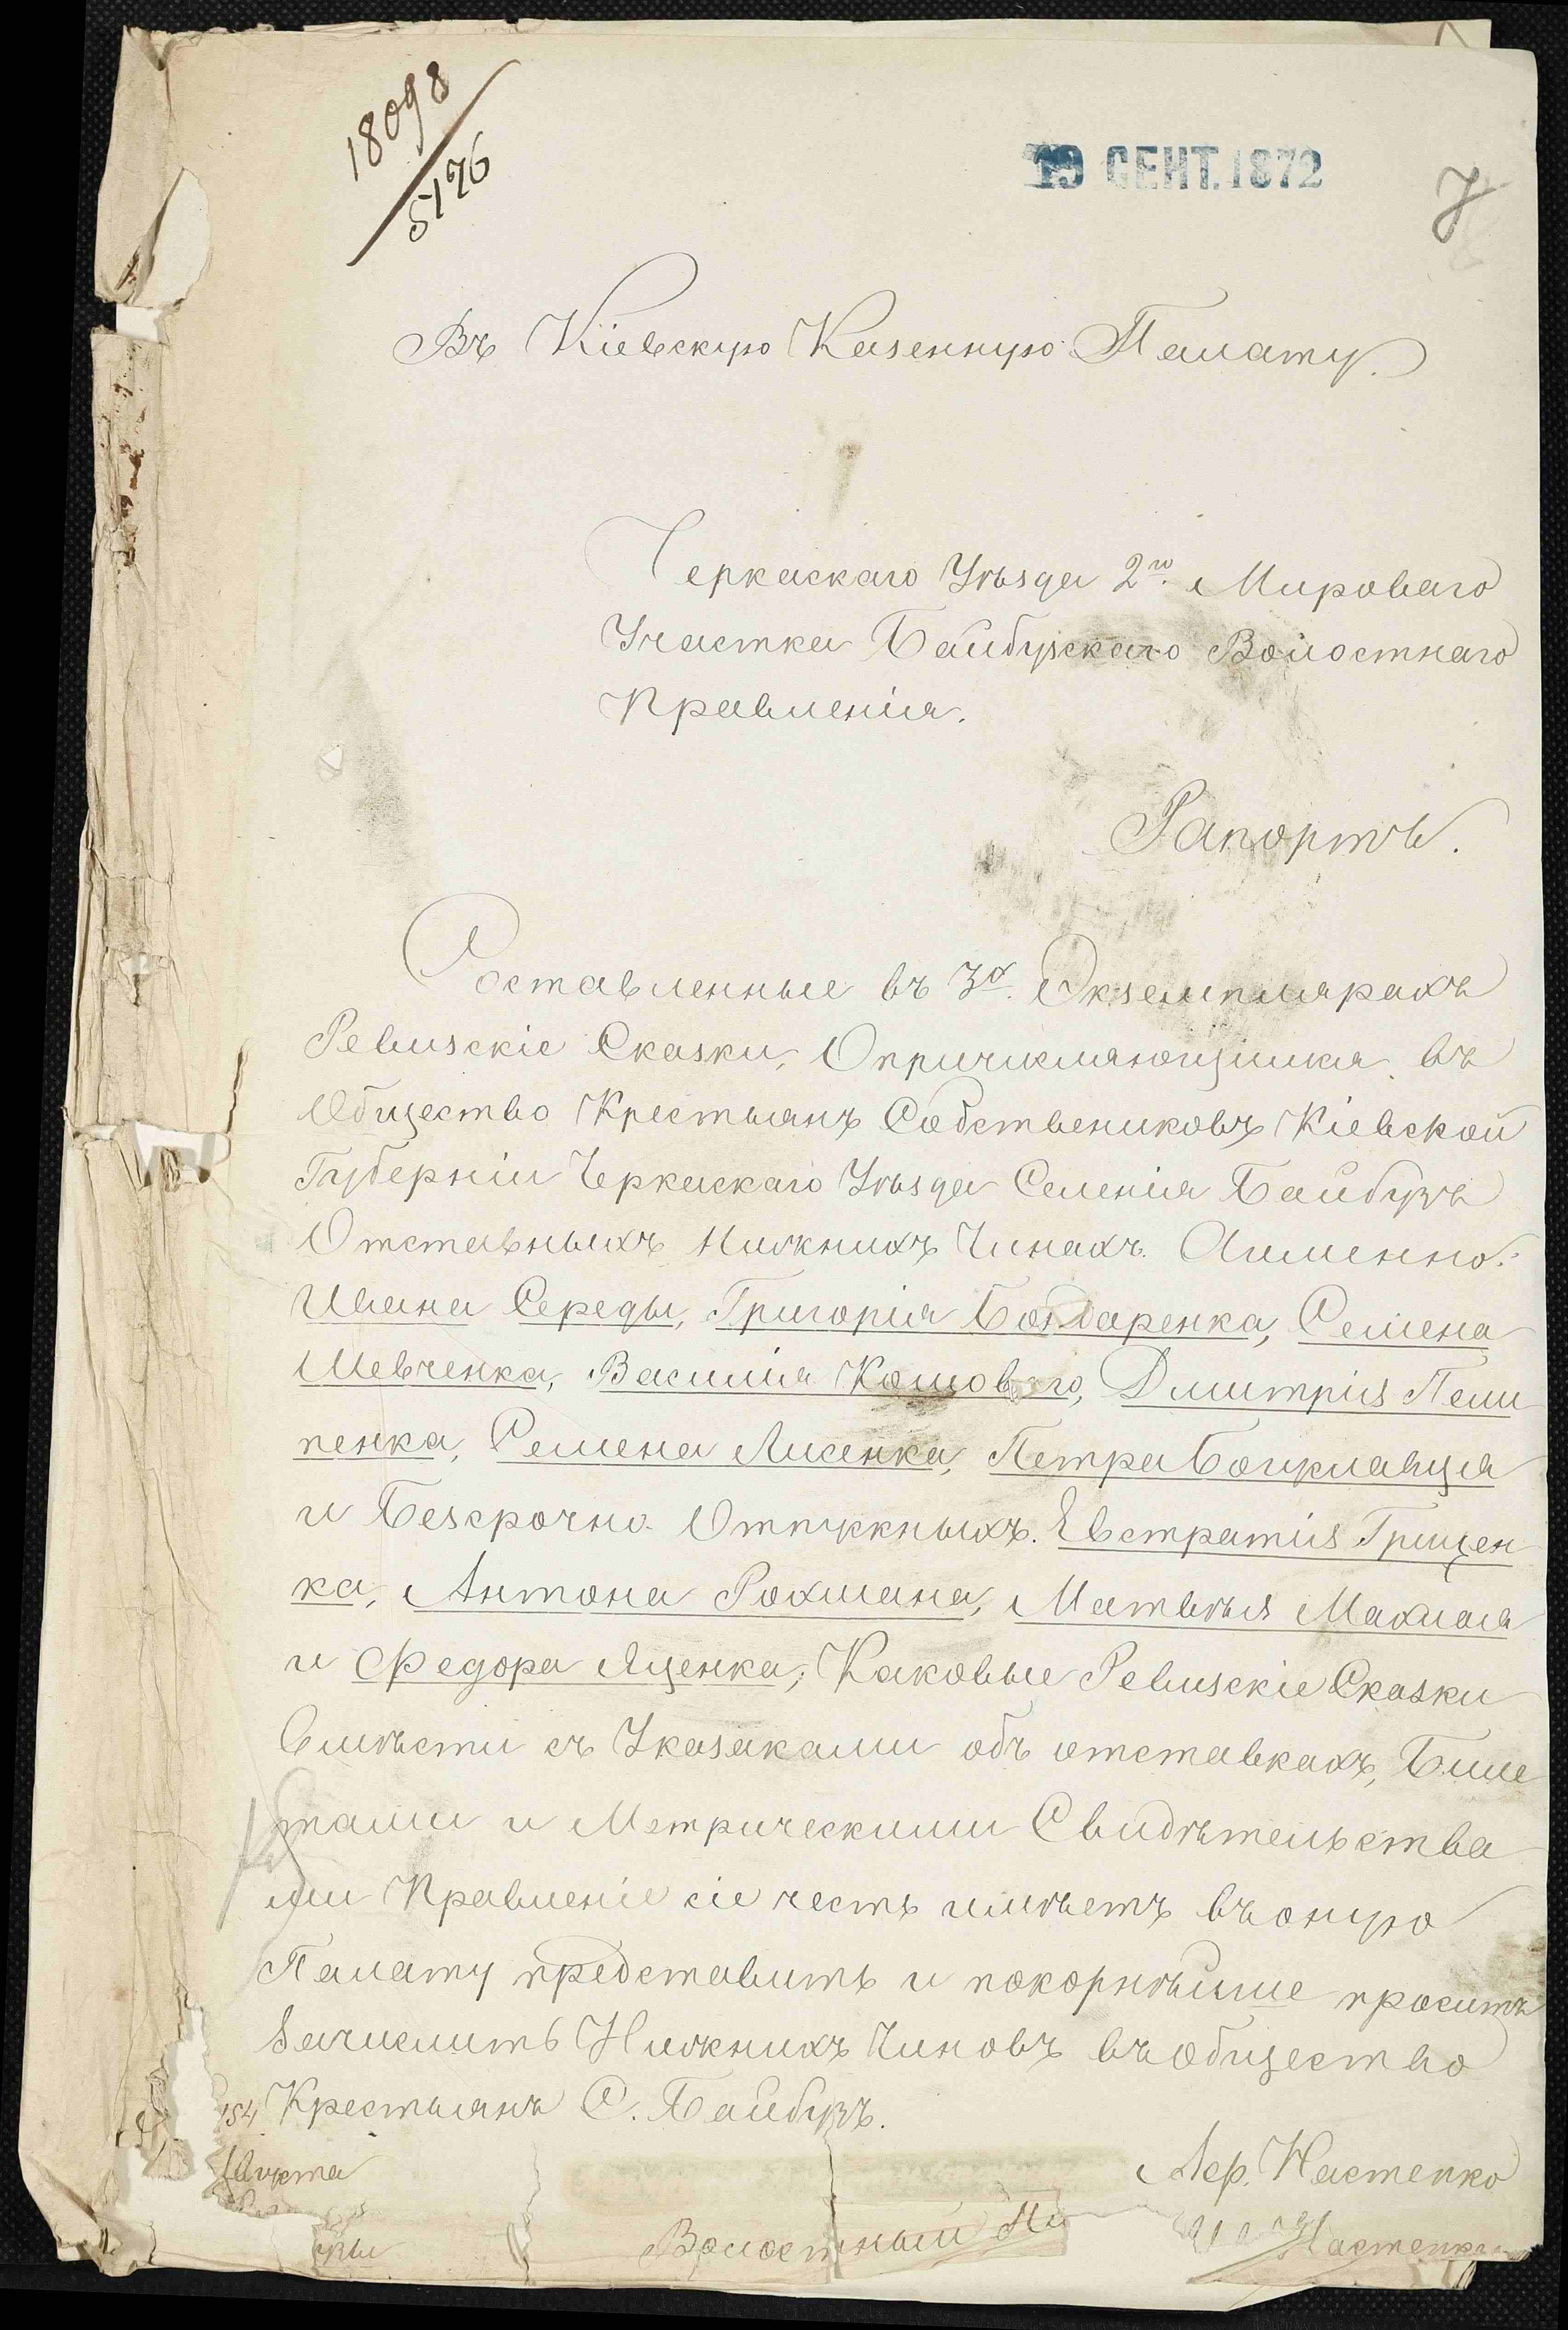 18098
5126
19 СЕНТ. 1872
7
Въ Кіевскую Казенную Палату.
Черкаскаго Уѣзда 2го Мироваго
Участка Байбузскаго Волостнаго
Правленія.
Рапортъ.
Составленные въ 3х Экземплярахъ
Ревизскіе Сказки, О причисляющихся въ
Общество Крестьянъ Собствениковъ Кіевской
Губерніи Черкаскаго Уѣзда Селенія Байбузъ
Отставныхъ Нижнихъ Чинахъ. Аименно:
Ивана Середы, Григорія Бондаренка, Семена
Шевченка, Василія Кошоваго, Дмитрія Пили
пенка, Семена Лисенка, Петра
и Безсрочно Отпускныхъ. Евстратія Грицен
ка, Антона Рохмана, Матвѣя Махиля
и Федора Яценка, Каковые Ревизскіе Сказки
Вмѣсти съ Указаками объ отставкахъ, Биле
тами и Мэтрическими Свидѣтельства
ми Правленіе сіе честь имѣетъ въ оную
Палату представить и покорнѣйше проситъ
Зачислить Нижнихъ Чиновъ въ общество
154 Крестьянъ С. Байбузъ.
Августа
Настенко
Волостный
Настенко